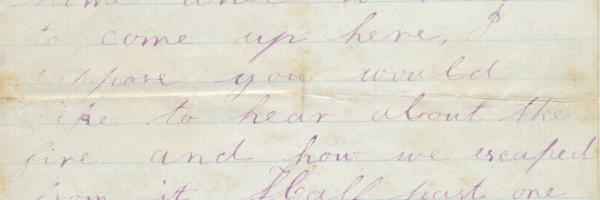 to come up here, I
suppose you would
like to hear about the
fire and how we escaped
from it Half past one